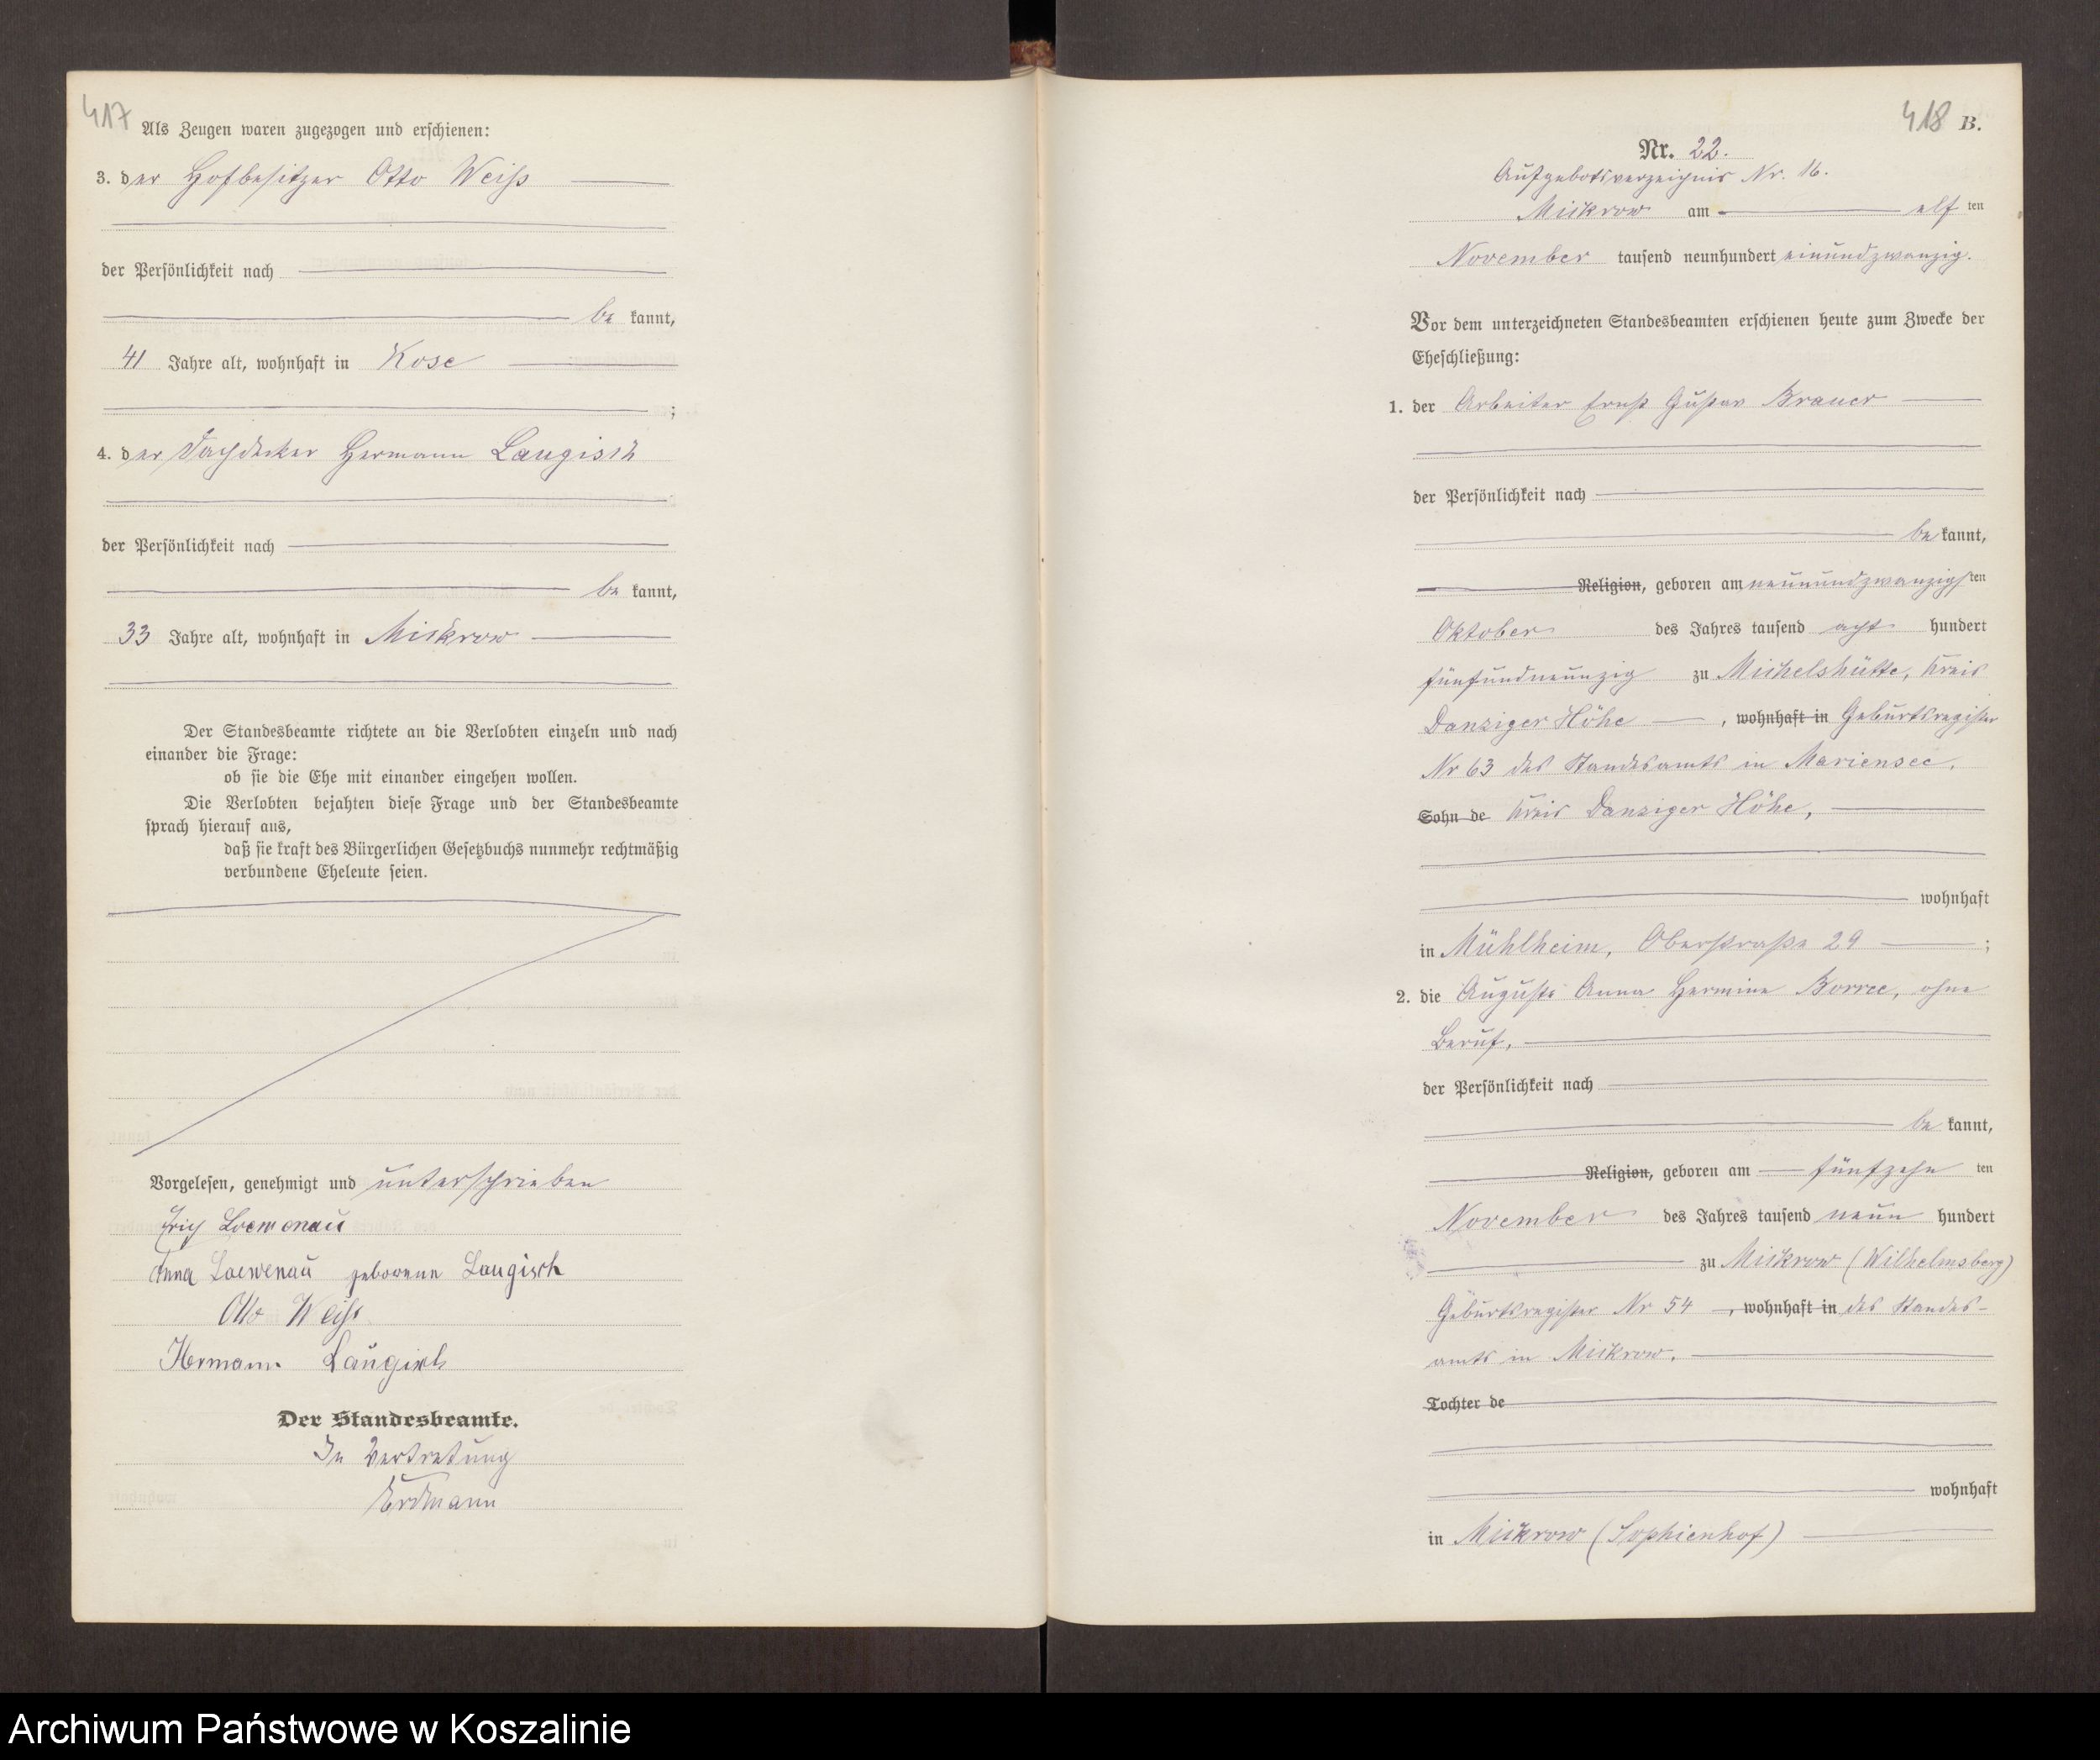 417
Als Zeugen waren zugezogen und erschienen:
3. der Hofbesitzer Otto Weiß
der Persönlichkeit nach
be kannt,
41 Jahre alt, wohnhaft in Kose
;
4. der Dachdecker Hermann Laugisch
der Persönlichkeit nach
be kannt,
33 Jahre alt, wohnhaft in Mickrow
Der Standesbeamte richtete an die Verlobten einzeln und nach
einander die Frage:
ob sie die Ehe mit einander eingehen wollen.
Die Verlobten bejahten diese Frage und der Standesbeamte
sprach hierauf aus,
daß sie kraft des Bürgerlichen Gesetzbuchs nunmehr rechtmäßig
verbundene Eheleute seien.
Vorgelesen, genehmigt und unterschrieben
Erich Loewenau
Anna Loewenau geborene Laugisch
Otto Weiß
Hermann Laugisch
Der Standesbeamte.
In Vertretung
Erdmann
418 B.
Nr. 22.
Aufgebotsverzeichnis Nr. 16.
Mickrow am elf ten
November tausend neunhundert einundzwanzig.
Vor dem unterzeichneten Standesbeamten erschienen heute zum Zwecke der
Eheschließung:
1. der Arbeiter Ernst Gustav Brauer
der Persönlichkeit nach
be kannt,
Religion, geboren am neunundzwanzigsten
Oktober des Jahres tausend acht hundert
fünfundneunzig zu Michelshütte, Kreis
Danziger Höhe, wohnhaft in Geburtsregister
Nr 63 des Standesamts in Mariensee,
Sohn de Kreis Danziger Höhe,
wohnhaft
in Mühlheim, Oberstraße 29 ;
2. die Auguste Anna Hermine Borree, ohne
Beruf,
der Persönlichkeit nach
be kannt,
Religion, geboren am fünfzehn ten
November des Jahres tausend neun hundert
zu Mickrow (Wilhelmsberg)
Geburtsregister Nr 54, wohnhaft in des Standes-
amts in Mickrow.
Tochter de
wohnhaft
in Mickrow (Sophienhof)
Archiwum Państwowe w Koszalinie